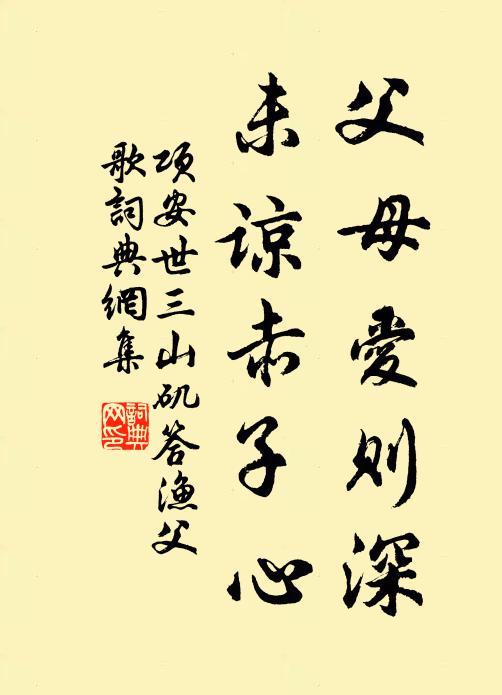 父母愛则深
未谅赤子心
项安世三山矶答漁父
歌詞典網集
詞典
网印